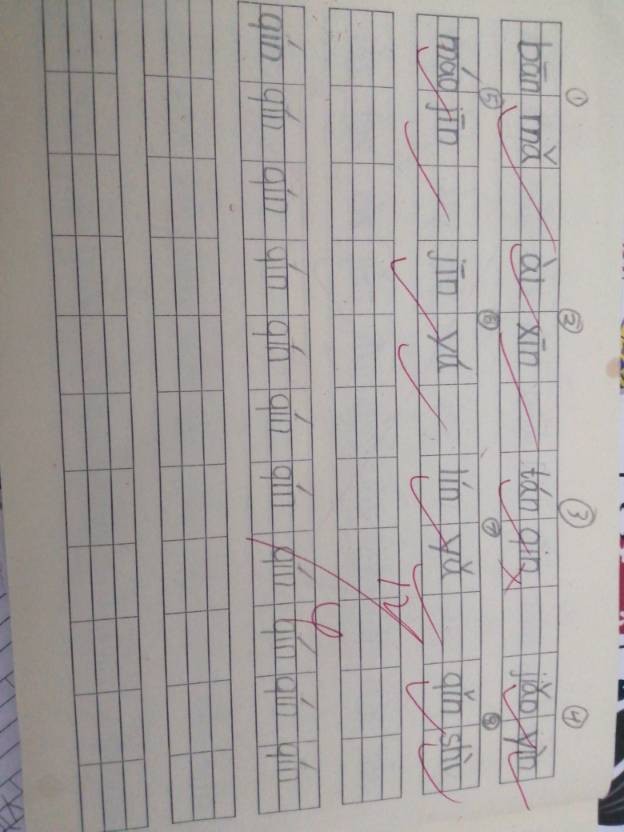 ① ② ③ ④
bān mǎ ài xīn tán qin jiǎo yìn
⑤ ⑥ ⑦ ⑧
máo jīn jīn yú lín yǔ qǐn shì
qín qín qín qín qín qín qín qín qín qín qín